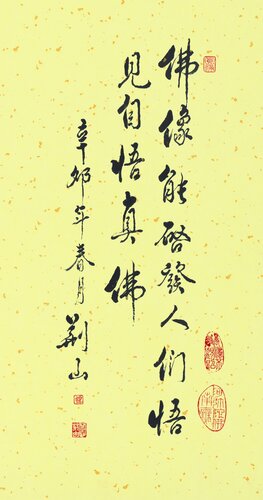 佛像能啓發人们悟
見自悟真佛
辛卯年春月
荆山